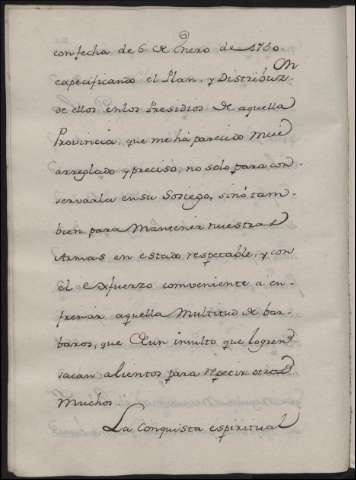 con fecha de 6 de Enero de 1750
especificando el Plan, y Distribuz.on
de ellos en los Presidios de aquella
Provincia, que me há parecido mui
arreglado y preciso, no solo para con
servarla en su Sosiego, sinó tam-
bien para Mantener nuestras
Armas en estado respetable, y con
el Esfuerzo combeniente a en-
frenar aquella Multitud de bar-
baros, que de un insulto que logren
sacan alientos para repetir otros
Muchos.
La Conquista espiritual